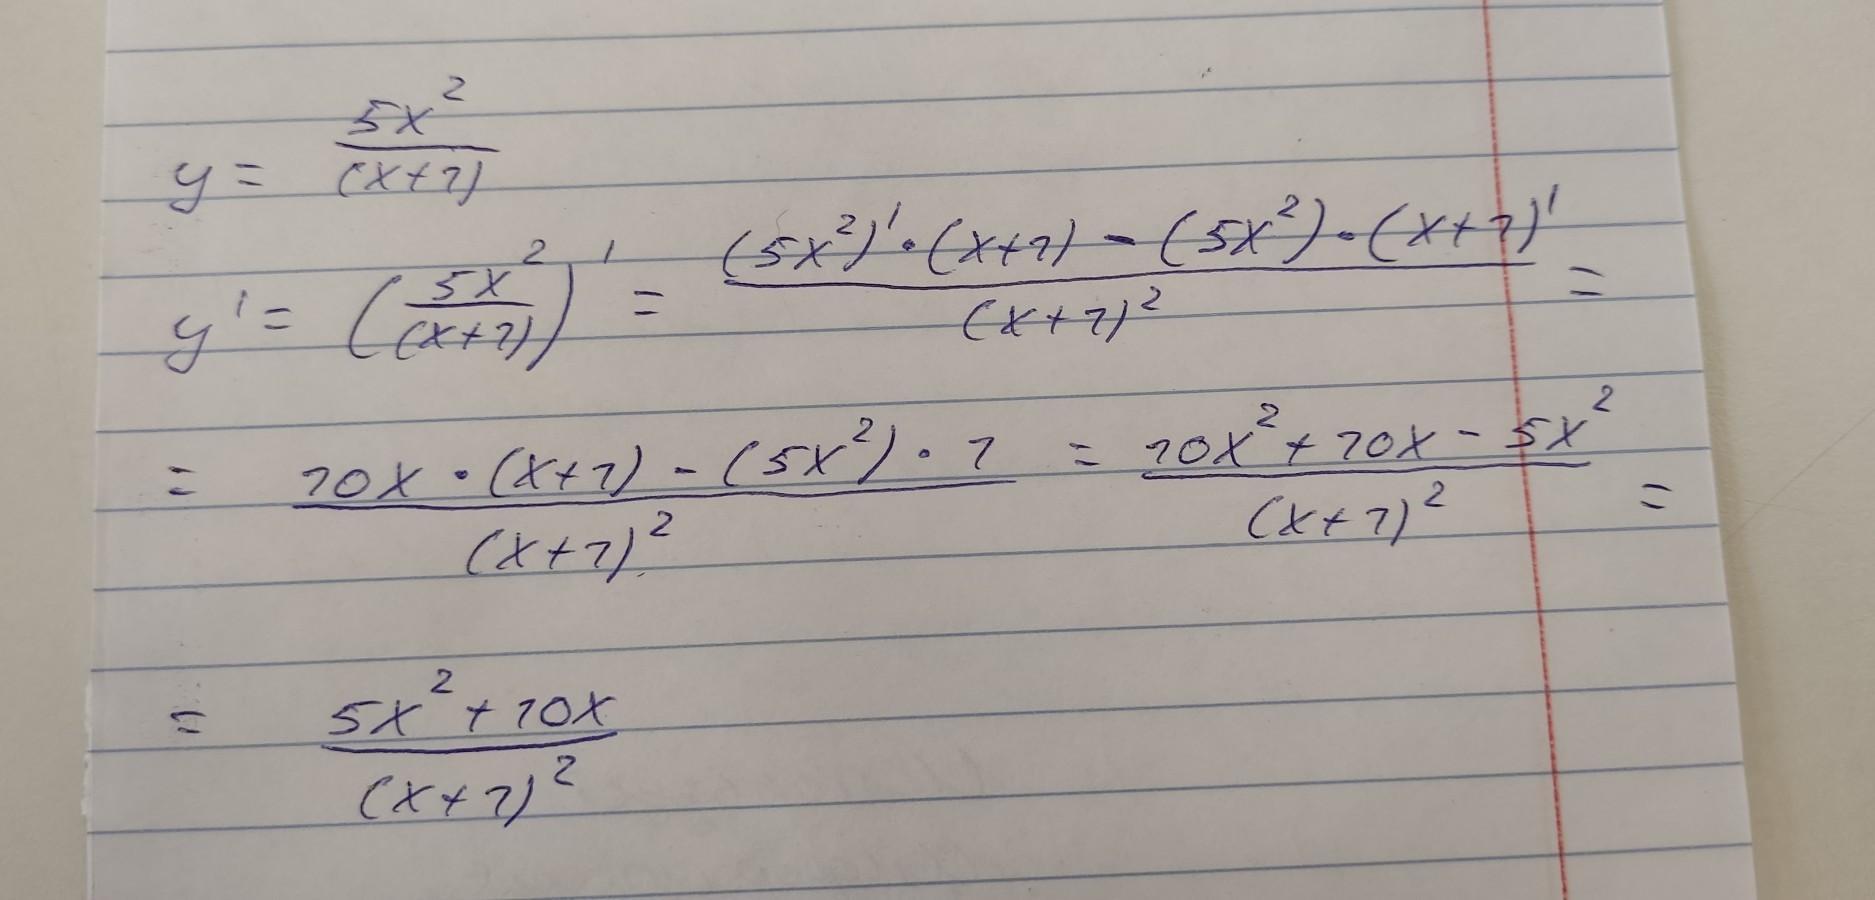 y = 5x²/(x+1)
y' = (5x²/(x+1))' = ((5x²)'·(x+1) - (5x²)·(x+1)')/(x+1)² =
= (10x·(x+1) - (5x²)·1)/(x+1)² = (10x² + 10x - 5x²)/(x+1)² =
= (5x² + 10x)/(x+1)²